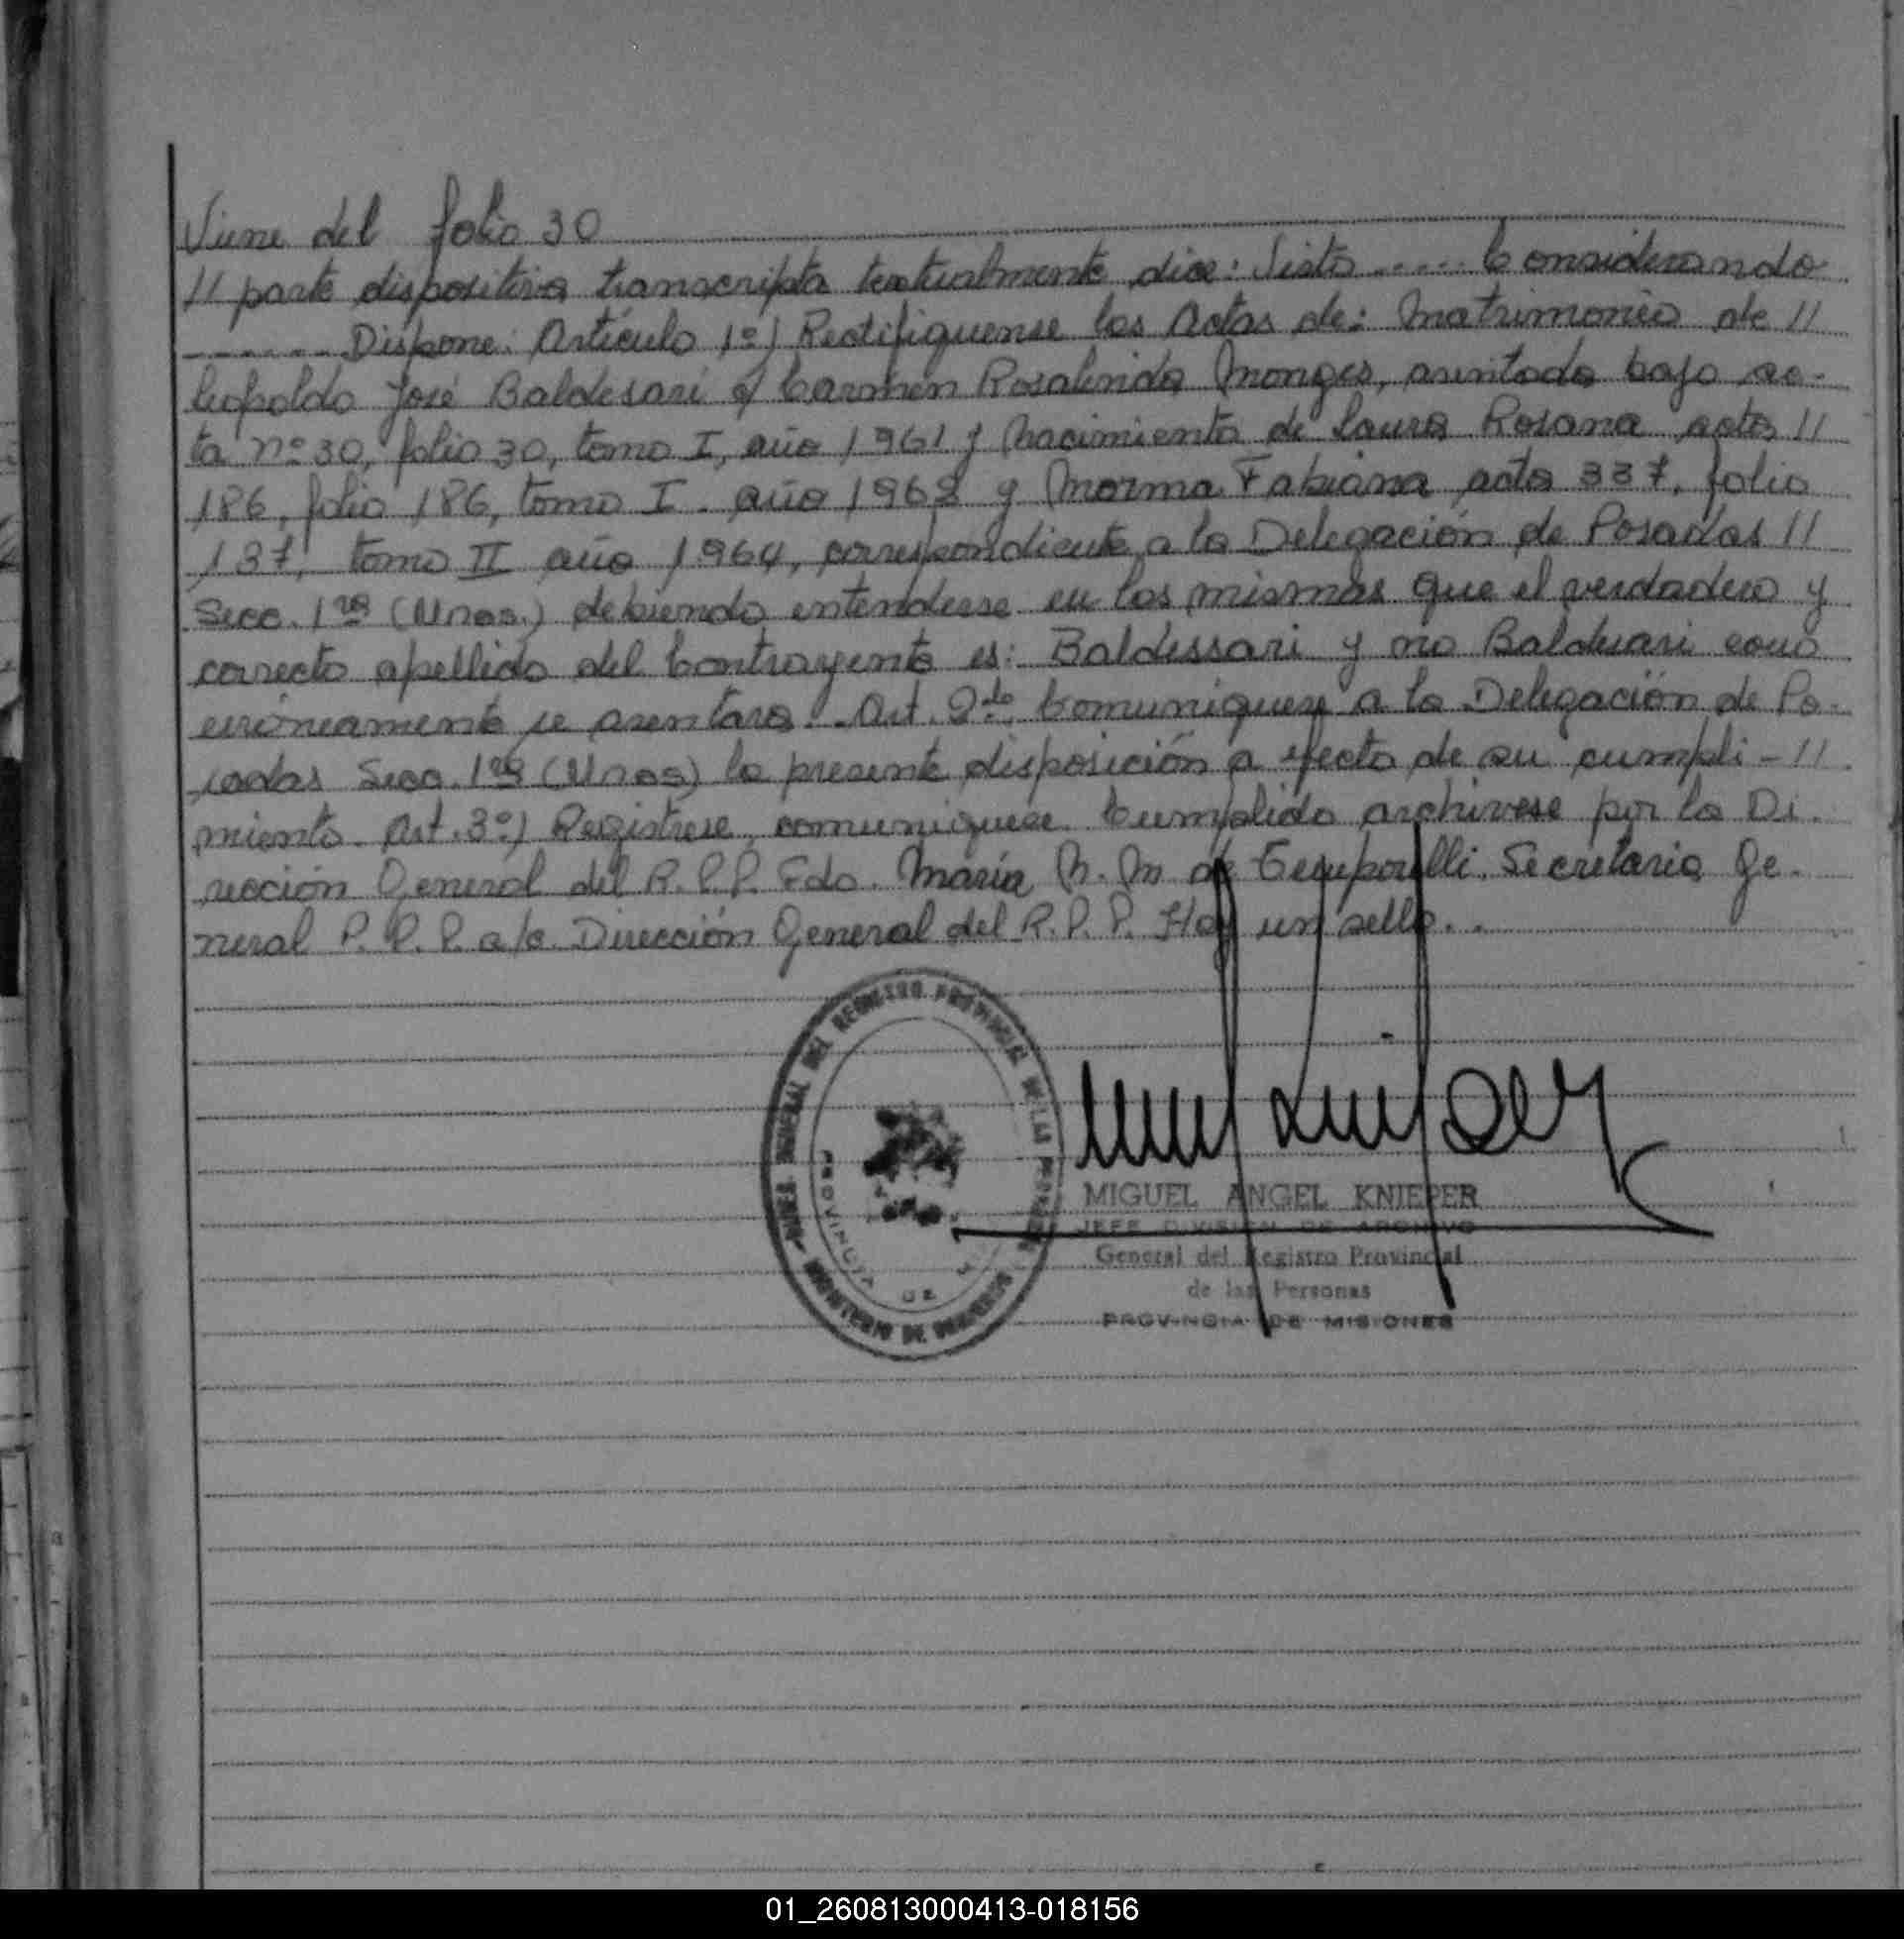 Viene del folio 30
// parte dispositiva transcripta textualmente dice: Visto ..... Considerando
....... Dispone: Artículo 1º) Rectifiquense las Actas de: Matrimonio de //
Leopoldo José Baldesari c/ Carmen Rosalinda Monges, asentada bajo ac-
ta nº 30, folio 30, tomo I, año 1961 y Nacimiento de Laura Rosana acta //
186, folio 186, tomo I. año 1962 y Norma Fabiana acta 337, folio
137, tomo II año 1964, correspondiente a la Delegación de Posadas //
Secc. 1ra (Mnes.) debiendo entenderse en las mismas que el verdadero y
correcto apellido del Contrayente es: Baldessari y no Baldesari como
erróneamente se asentara. Art. 2do Comuniquese a la Delegación de Po-
sadas Secc. 1ra (Mnes) la presente disposición a efecto de su cumpli-//
miento. Art. 3º) Registrese, comuniquese Cumplido archivese por la Di-
rección General del R.P.P. Fdo. María M. de Temporelli. Secretaria Ge-
neral R.P.P. a/c. Dirección General del R.P.P. Hay un sello..
GENERAL DEL REGISTRO PROVINCIAL DE LAS PERSONAS
MINISTERIO DE GOBIERNO
PROVINCIA DE
MIGUEL ANGEL KNIEPER
JEFE DIVISION DE ARCHIVO
General del Registro Provincial
de las Personas
PROVINCIA DE MISIONES
01_260813000413-018156